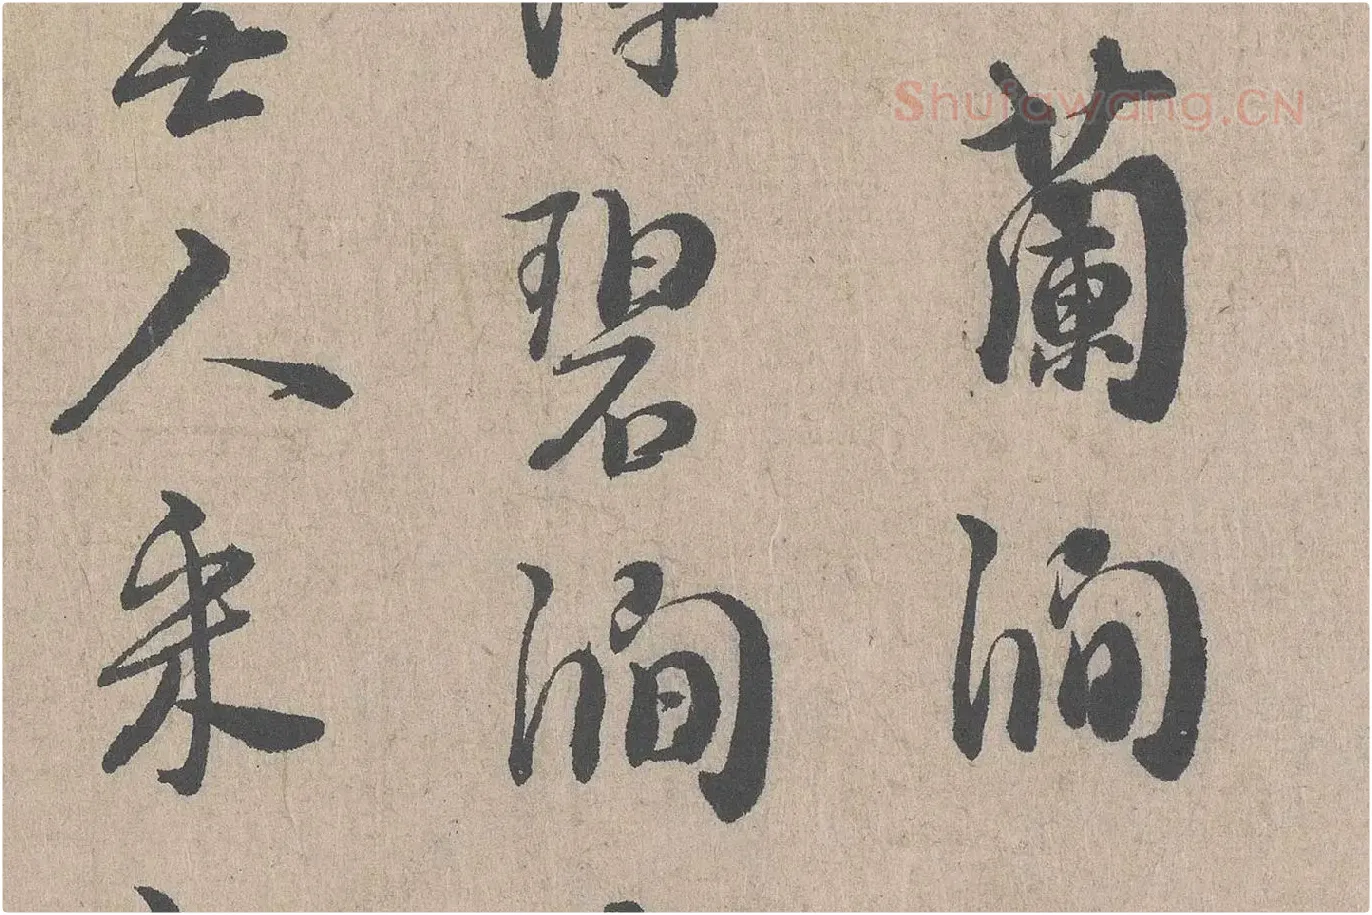 Shufawang.CN
蘭澗
碧澗
人采